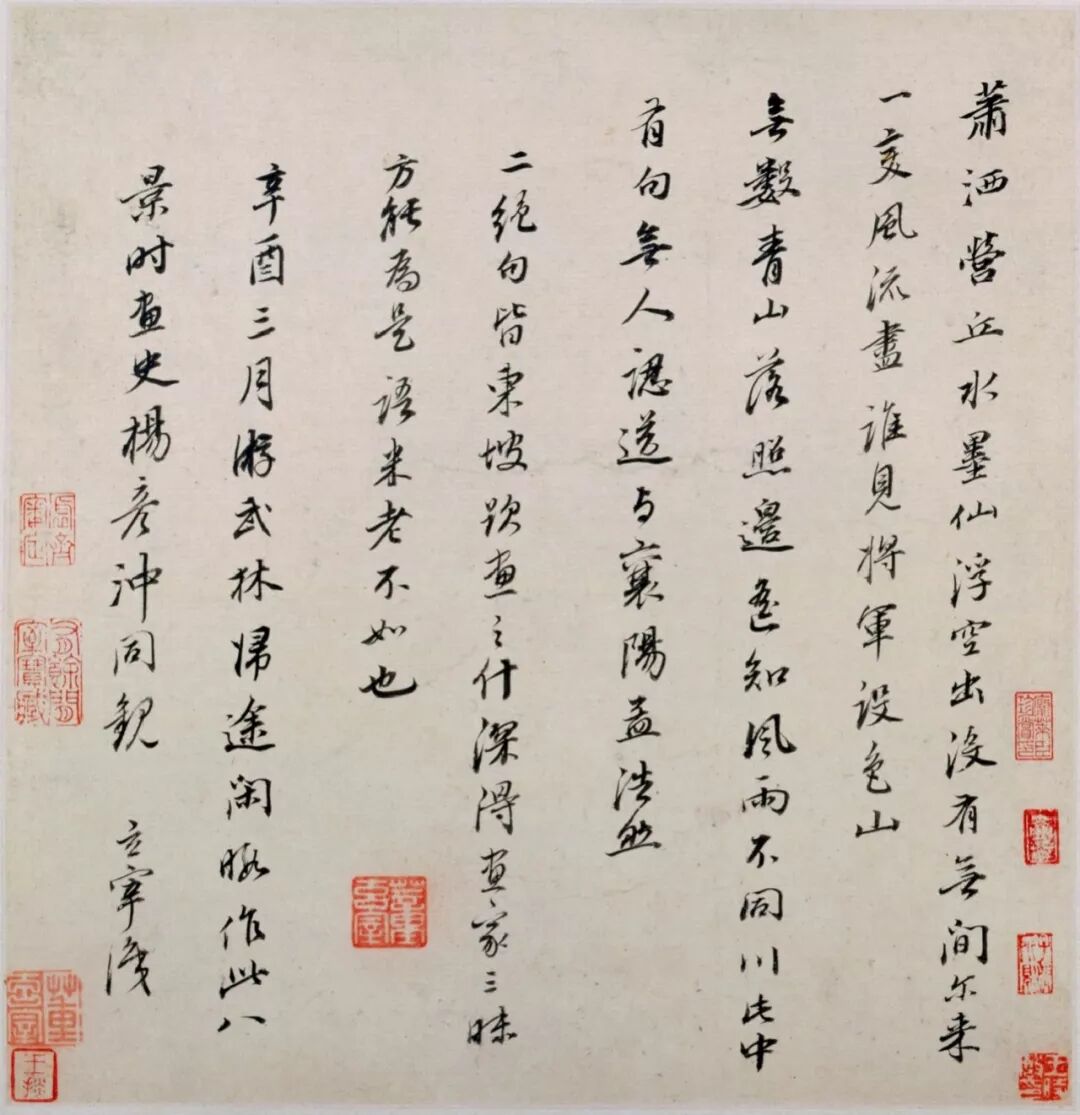 蕭洒營丘水墨仙浮空出没有無間尔来
一变風流盡誰見將軍設色山
無數青山落照邊遙知風雨不同川此中
有句無人識送与襄陽孟浩然
二絕句皆東坡題画之什深得画家三昧
方能為是語米老不如也
辛酉三月游武林歸途閑暇作此八
景时画史楊彥沖同觀 玄宰識